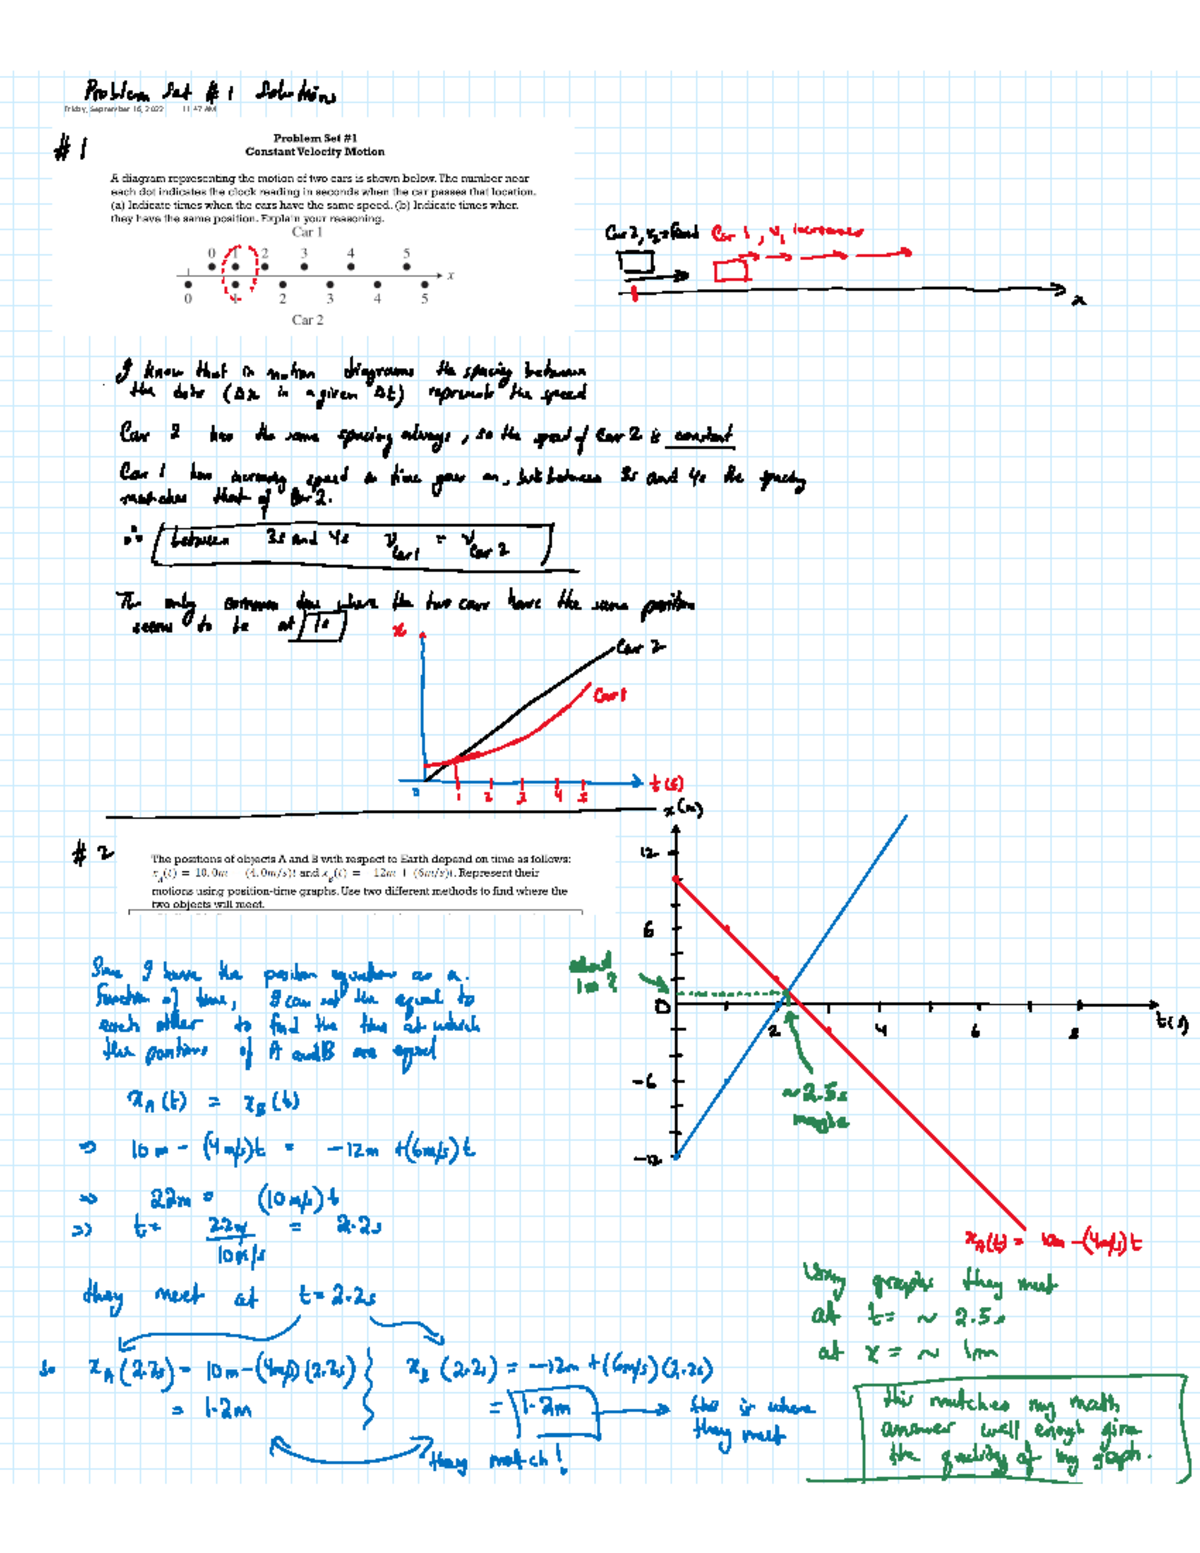 Problem Set #1 Solutions
Friday, September 16, 2022 11:47 AM
#1
Problem Set #1
Constant Velocity Motion
A diagram representing the motion of two cars is shown below. The number near
each dot indicates the clock reading in seconds when the car passes that location.
(a) Indicate times when the cars have the same speed. (b) Indicate times when
they have the same position. Explain your reasoning.
Car 1
0 1 2 3 4 5
x
0 1 2 3 4 5
Car 2
Car 2, v₂ = fixed Car 1, v₁ increases
x
I know that in motion diagrams the spacing between
the dots (Δx in a given Δt) represents the speed
Car 2 has the same spacing always, so the speed of Car 2 is constant
Car 1 has increasing speed as time goes on, but between 3s and 4s the spacing
matches that of Car 2.
∴ between 3s and 4s v Car 1 = v Car 2
The only common time where the two cars have the same position
seems to be at 1s
x
Car 2
Car 1
0 1 2 3 4 5 t(s)
#2
The positions of objects A and B with respect to Earth depend on time as follows:
x_A(t) = 10.0m − (4.0m/s)t and x_B(t) = −12m + (6m/s)t. Represent their
motions using position-time graphs. Use two different methods to find where the
two objects will meet.
x(m)
12
6
0
-6
-12
2 4 6 8 t(s)
about
1m?
~2.5s
maybe
x_A(t) = 10m −(4m/s)t
Since I have the position equations as a
function of time, I can set the equal to
each other to find the time at which
the positions of A and B are equal
x_A(t) = x_B(t)
⇒ 10m − (4m/s)t = −12m +(6m/s)t
⇒ 22m = (10m/s)t
⇒ t = 22m/10m/s = 2.2s
they meet at t = 2.2s
so x_A(2.2s) = 10m−(4m/s)(2.2s)
= 1.2m
x_B(2.2s) = −12m +(6m/s)(2.2s)
= 1.2m → this is where
they meet
they match!
Using graphs they meet
at t = ~ 2.5s
at x = ~ 1m
this matches my math
answer well enough given
the quality of my graph.